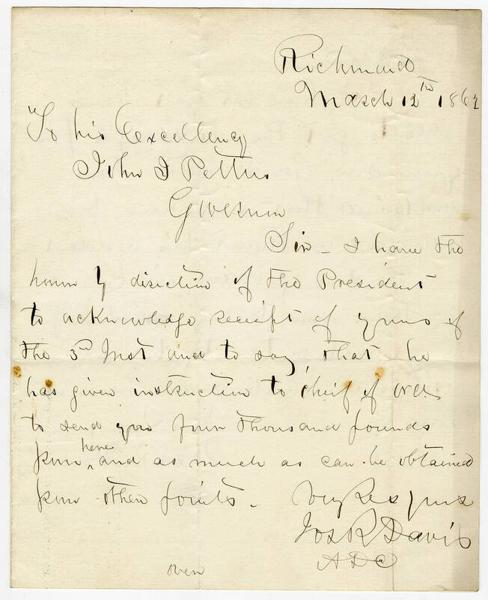 Richmond
March 12th 1862
To his Excellency
John J Pettus
Governor
Sir - I have the
honor by direction of the President
to acknowledge receipt of yours of
the 5th Inst and to say that he
has given instruction to chief of ord
to send you four thousand pounds
from here, and as much as can be obtained
from other points. Very Resp yours
Jos R Davis
ADC
over